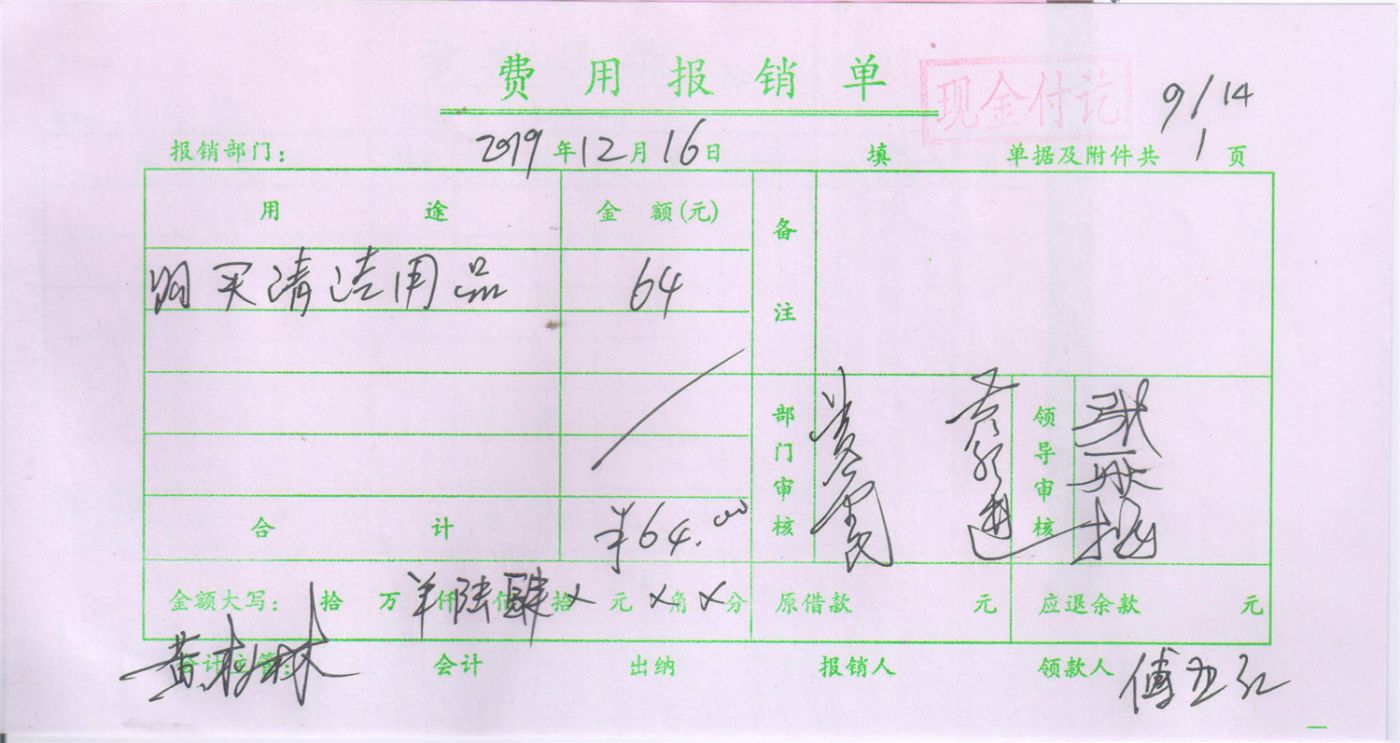 费用报销单
现金付讫
9/14
报销部门: 2019年12月16日 填 单据及附件共 1 页
用途 金额(元) 备注
购买清洁用品 64
部门审核 领导审核
合计 ¥64.00
金额大写: 拾 万 仟 佰 拾 元 角 分 原借款 元 应退余款 元
陆肆
会计主管: 会计 出纳 报销人 领款人